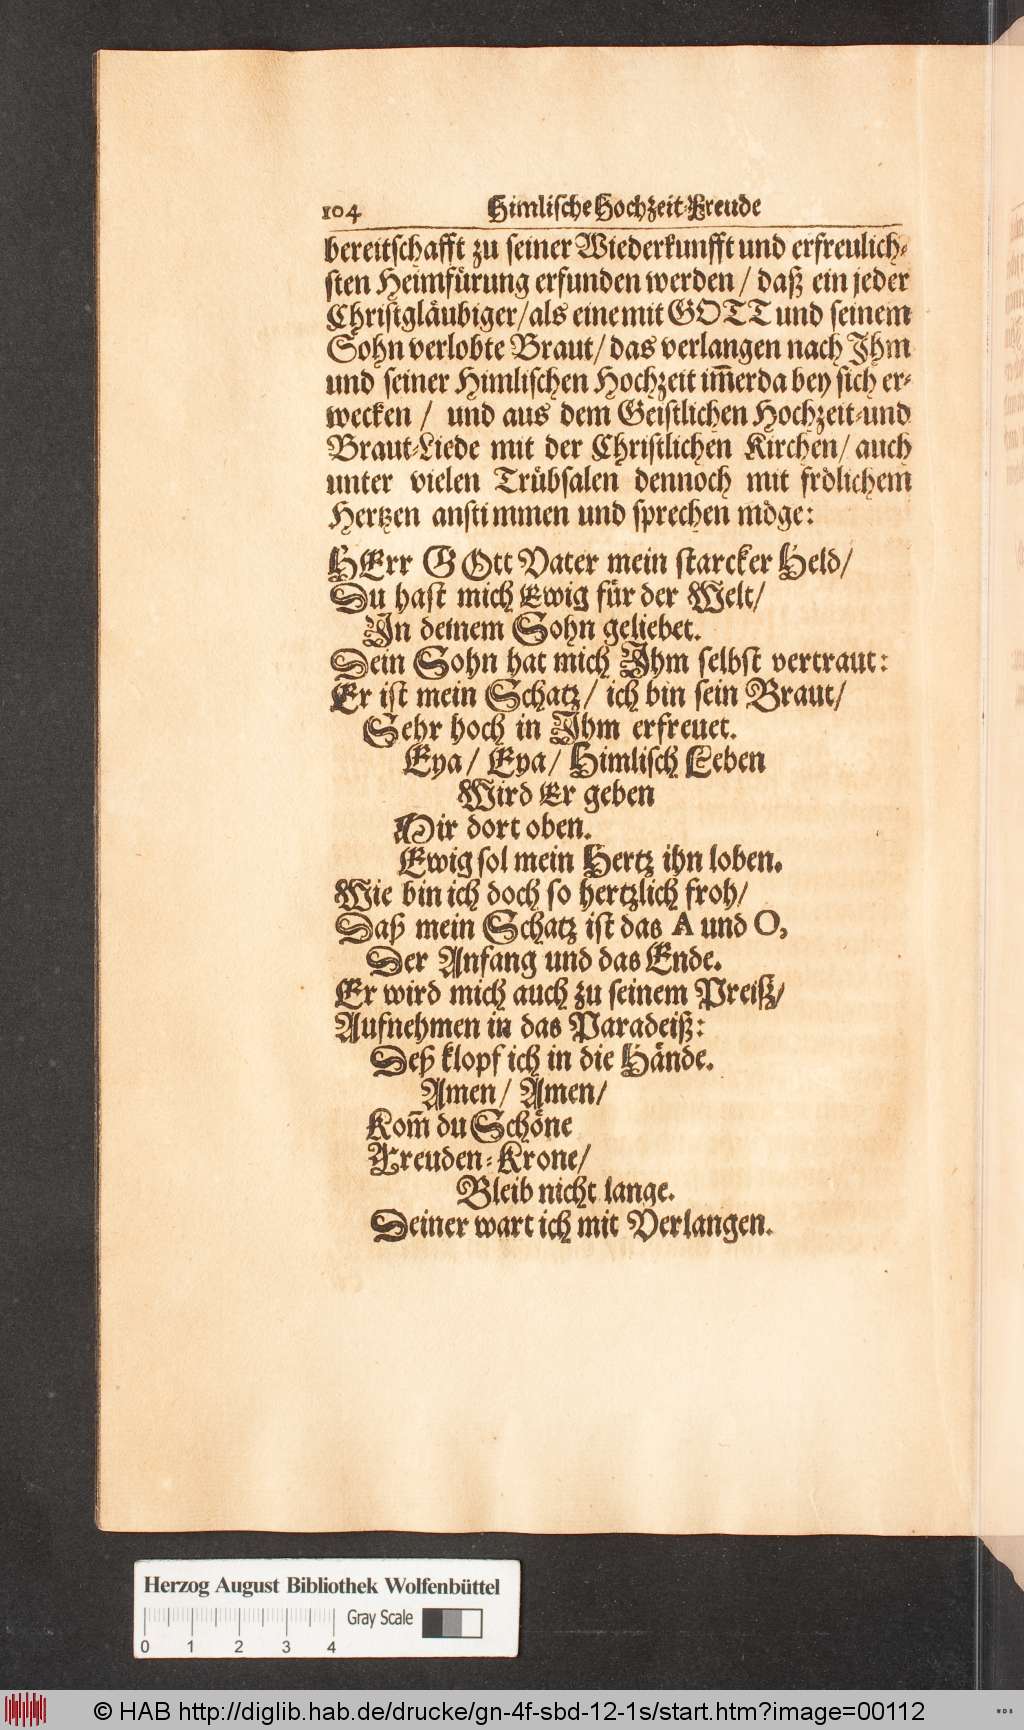 104 Himlische Hochzeit-Freude
bereitschafft zu seiner Wiederkunfft und erfreulich-
sten Heimfürung erfunden werden / daß ein jeder
Christgläubiger / als eine mit GOTT und seinem
Sohn verlobte Braut / das verlangen nach Jhm
und seiner Himlischen Hochzeit im̃erda bey sich er-
wecken / und aus dem Geistlichen Hochzeit-und
Braut-Liede mit der Christlichen Kirchen / auch
unter vielen Trübsalen dennoch mit frölichem
Hertzen anstimmen und sprechen möge:
HErr GOtt Vater mein starcker Held /
Du hast mich Ewig für der Welt /
Jn deinem Sohn geliebet.
Dein Sohn hat mich Jhm selbst vertraut:
Er ist mein Schatz / ich bin sein Braut /
Sehr hoch in Jhm erfreuet.
Eya / Eya / Himlisch Leben
Wird Er geben
Mir dort oben.
Ewig sol mein Hertz ihn loben.
Wie bin ich doch so hertzlich froh /
Daß mein Schatz ist das A und O,
Der Anfang und das Ende.
Er wird mich auch zu seinem Preiß /
Aufnehmen in das Paradeiß:
Deß klopf ich in die Hände.
Amen / Amen /
Kom̃ du Schöne
Freuden-Krone /
Bleib nicht lange.
Deiner wart ich mit Verlangen.
Herzog August Bibliothek Wolfenbüttel
Gray Scale
0 1 2 3 4
© HAB http://diglib.hab.de/drucke/gn-4f-sbd-12-1s/start.htm?image=00112